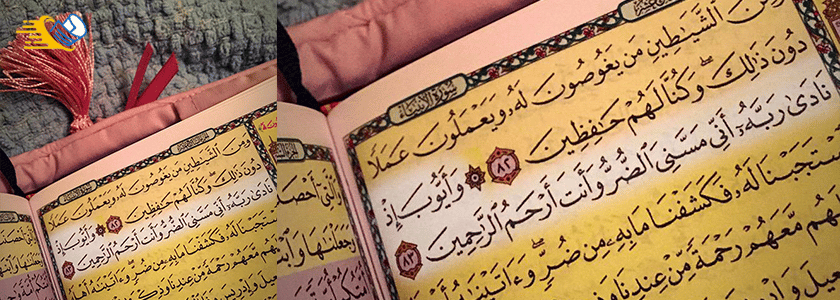 سُورَةُ الأَنبِيَاءِ
وَمِنَ ٱلشَّيَٰطِينِ مَن يَغُوصُونَ لَهُۥ وَيَعْمَلُونَ عَمَلًا
دُونَ ذَٰلِكَ ۖ وَكُنَّا لَهُمْ حَٰفِظِينَ ٨٢ ۞ وَأَيُّوبَ إِذْ
نَادَىٰ رَبَّهُۥٓ أَنِّى مَسَّنِىَ ٱلضُّرُّ وَأَنتَ أَرْحَمُ ٱلرَّٰحِمِينَ ٨٣
سْتَجَبْنَا لَهُۥ فَكَشَفْنَا مَا بِهِۦ مِن ضُرٍّ ۖ وَءَاتَيْنَٰهُ أَهْ
لَهُم مَّعَهُمْ رَحْمَةً مِّنْ عِندِنَا وَذِ
وَٱلَّتِىٓ أَحْصَ
وَجَعَلْنَٰهَا وَٱبْ
أُمَّتُكُمْ أُمَّةً
وَمِنَ ٱلشَّيَٰطِينِ مَن يَغُوصُونَ لَهُۥ وَيَعْمَلُونَ عَمَلًا
دُونَ ذَٰلِكَ ۖ وَكُنَّا لَهُمْ حَٰفِظِينَ ٨٢ ۞ وَأَيُّوبَ إِذْ
نَادَىٰ رَبَّهُۥٓ أَنِّى مَسَّنِىَ ٱلضُّرُّ وَأَنتَ أَرْحَمُ ٱلرَّٰحِمِينَ ٨٣
لَهُۥ فَكَشَفْنَا مَا بِهِۦ مِن ضُرٍّ ۖ وَءَاتَيْنَٰهُ أَهْ
هُم مَّعَهُمْ رَحْمَةً مِّنْ عِندِنَا وَذِكْ